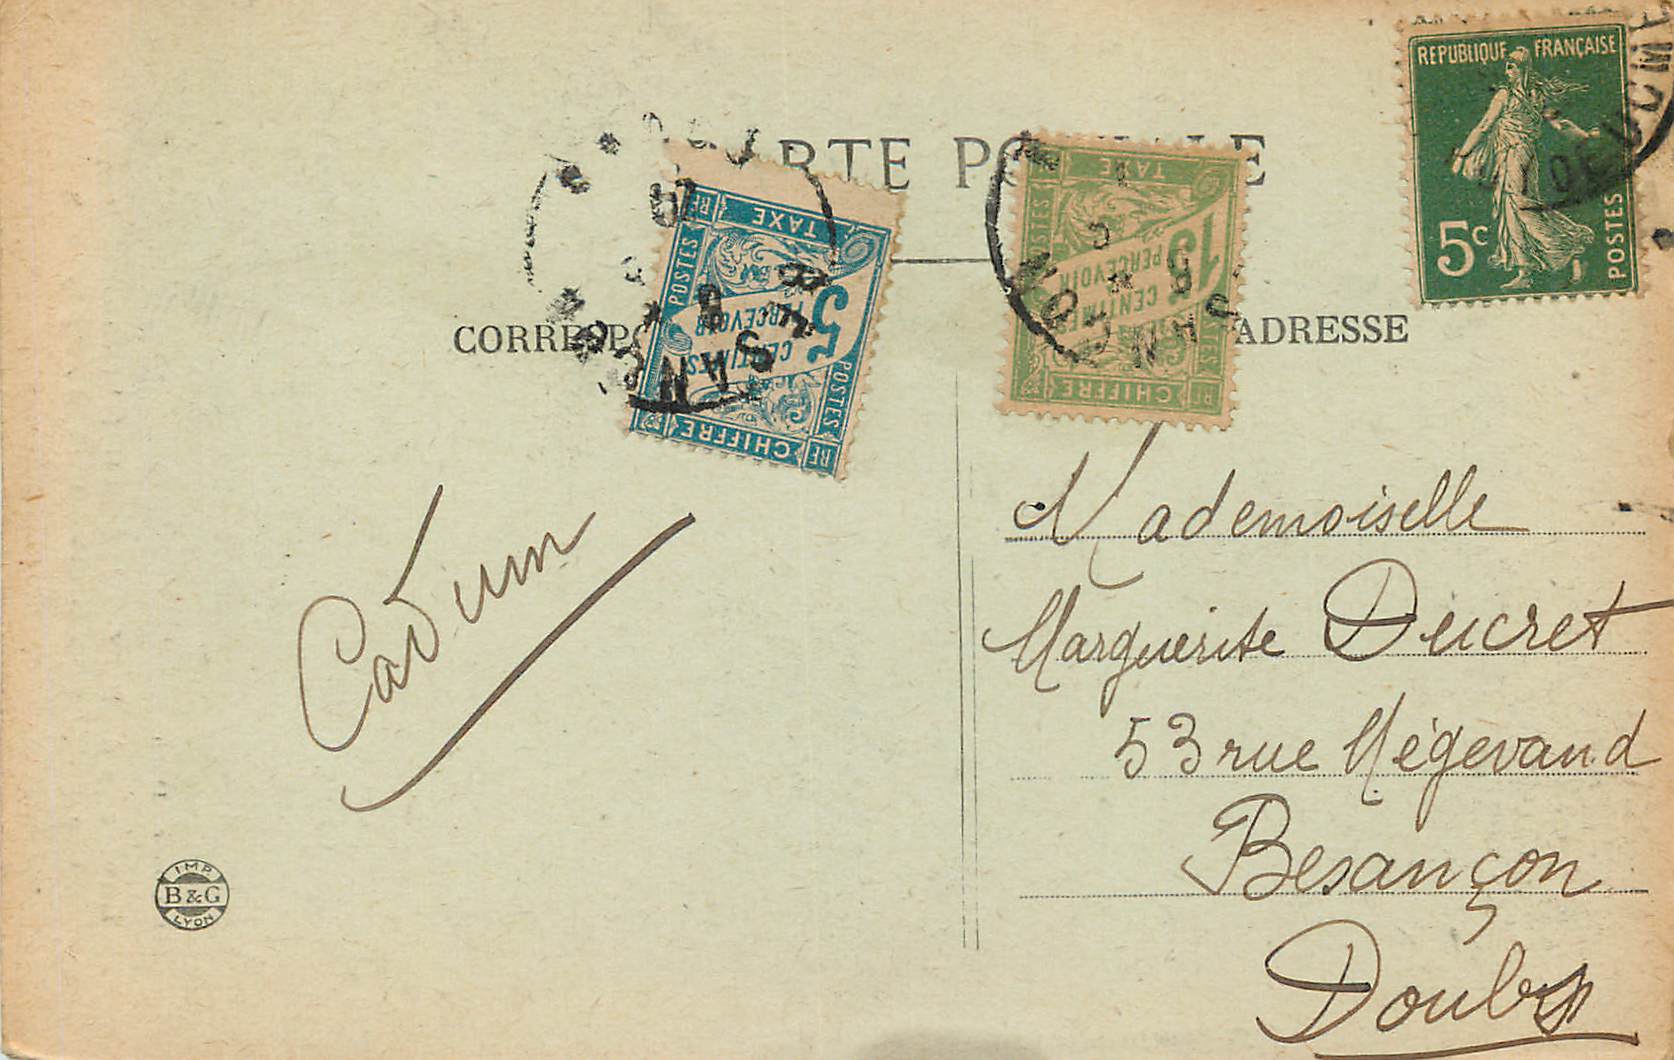 CARTE POSTALE
CORRESPO
ADRESSE
REPUBLIQUE FRANÇAISE
5c
POSTES
CHIFFRE
TAXE
5
CENTIMES
PERCEVOIR
POSTES
POSTES
RF
RF
CHIFFRE
TAXE
15
CENTIMES
PERCEVOIR
POSTES
RF
BESANÇON
Cadum
Mademoiselle
Marguerite Ducret
53 rue Mégevand
Besançon
Doubs
IMP
B&G
LYON